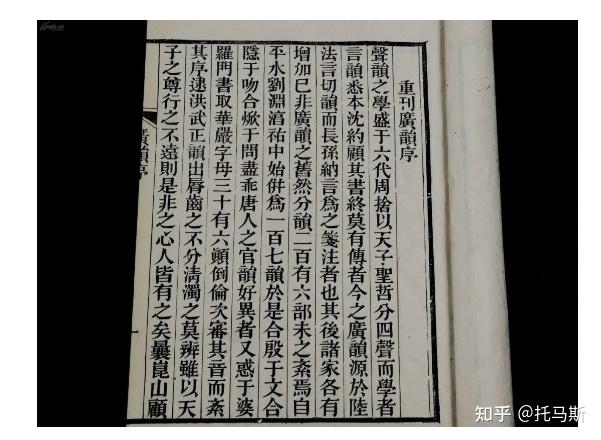 重刊廣韻序
聲韻之學盛于六代周捨以天子聖哲分四聲而學者
言韻悉本沈約顧其書終莫有傳者今之廣韻源於陸
法言切韻而長孫納言爲之箋注者也其後諸家各有
增加已非廣韻之舊然分韻二百有六部未之紊焉自
平水劉淵湻祐中始倂爲一百七韻於是合殷于文合
隱于吻合焮于問盡乖唐人之官韻好異者又惑于婆
羅門書取華嚴字母三十有六顚倒倫次審其音而紊
其序逮洪武正韻出脣齒之不分淸濁之莫辨雖以天
子之尊行之不遠則是非之心人皆有之矣曩崑山顧
廣韻序
知乎 @托马斯